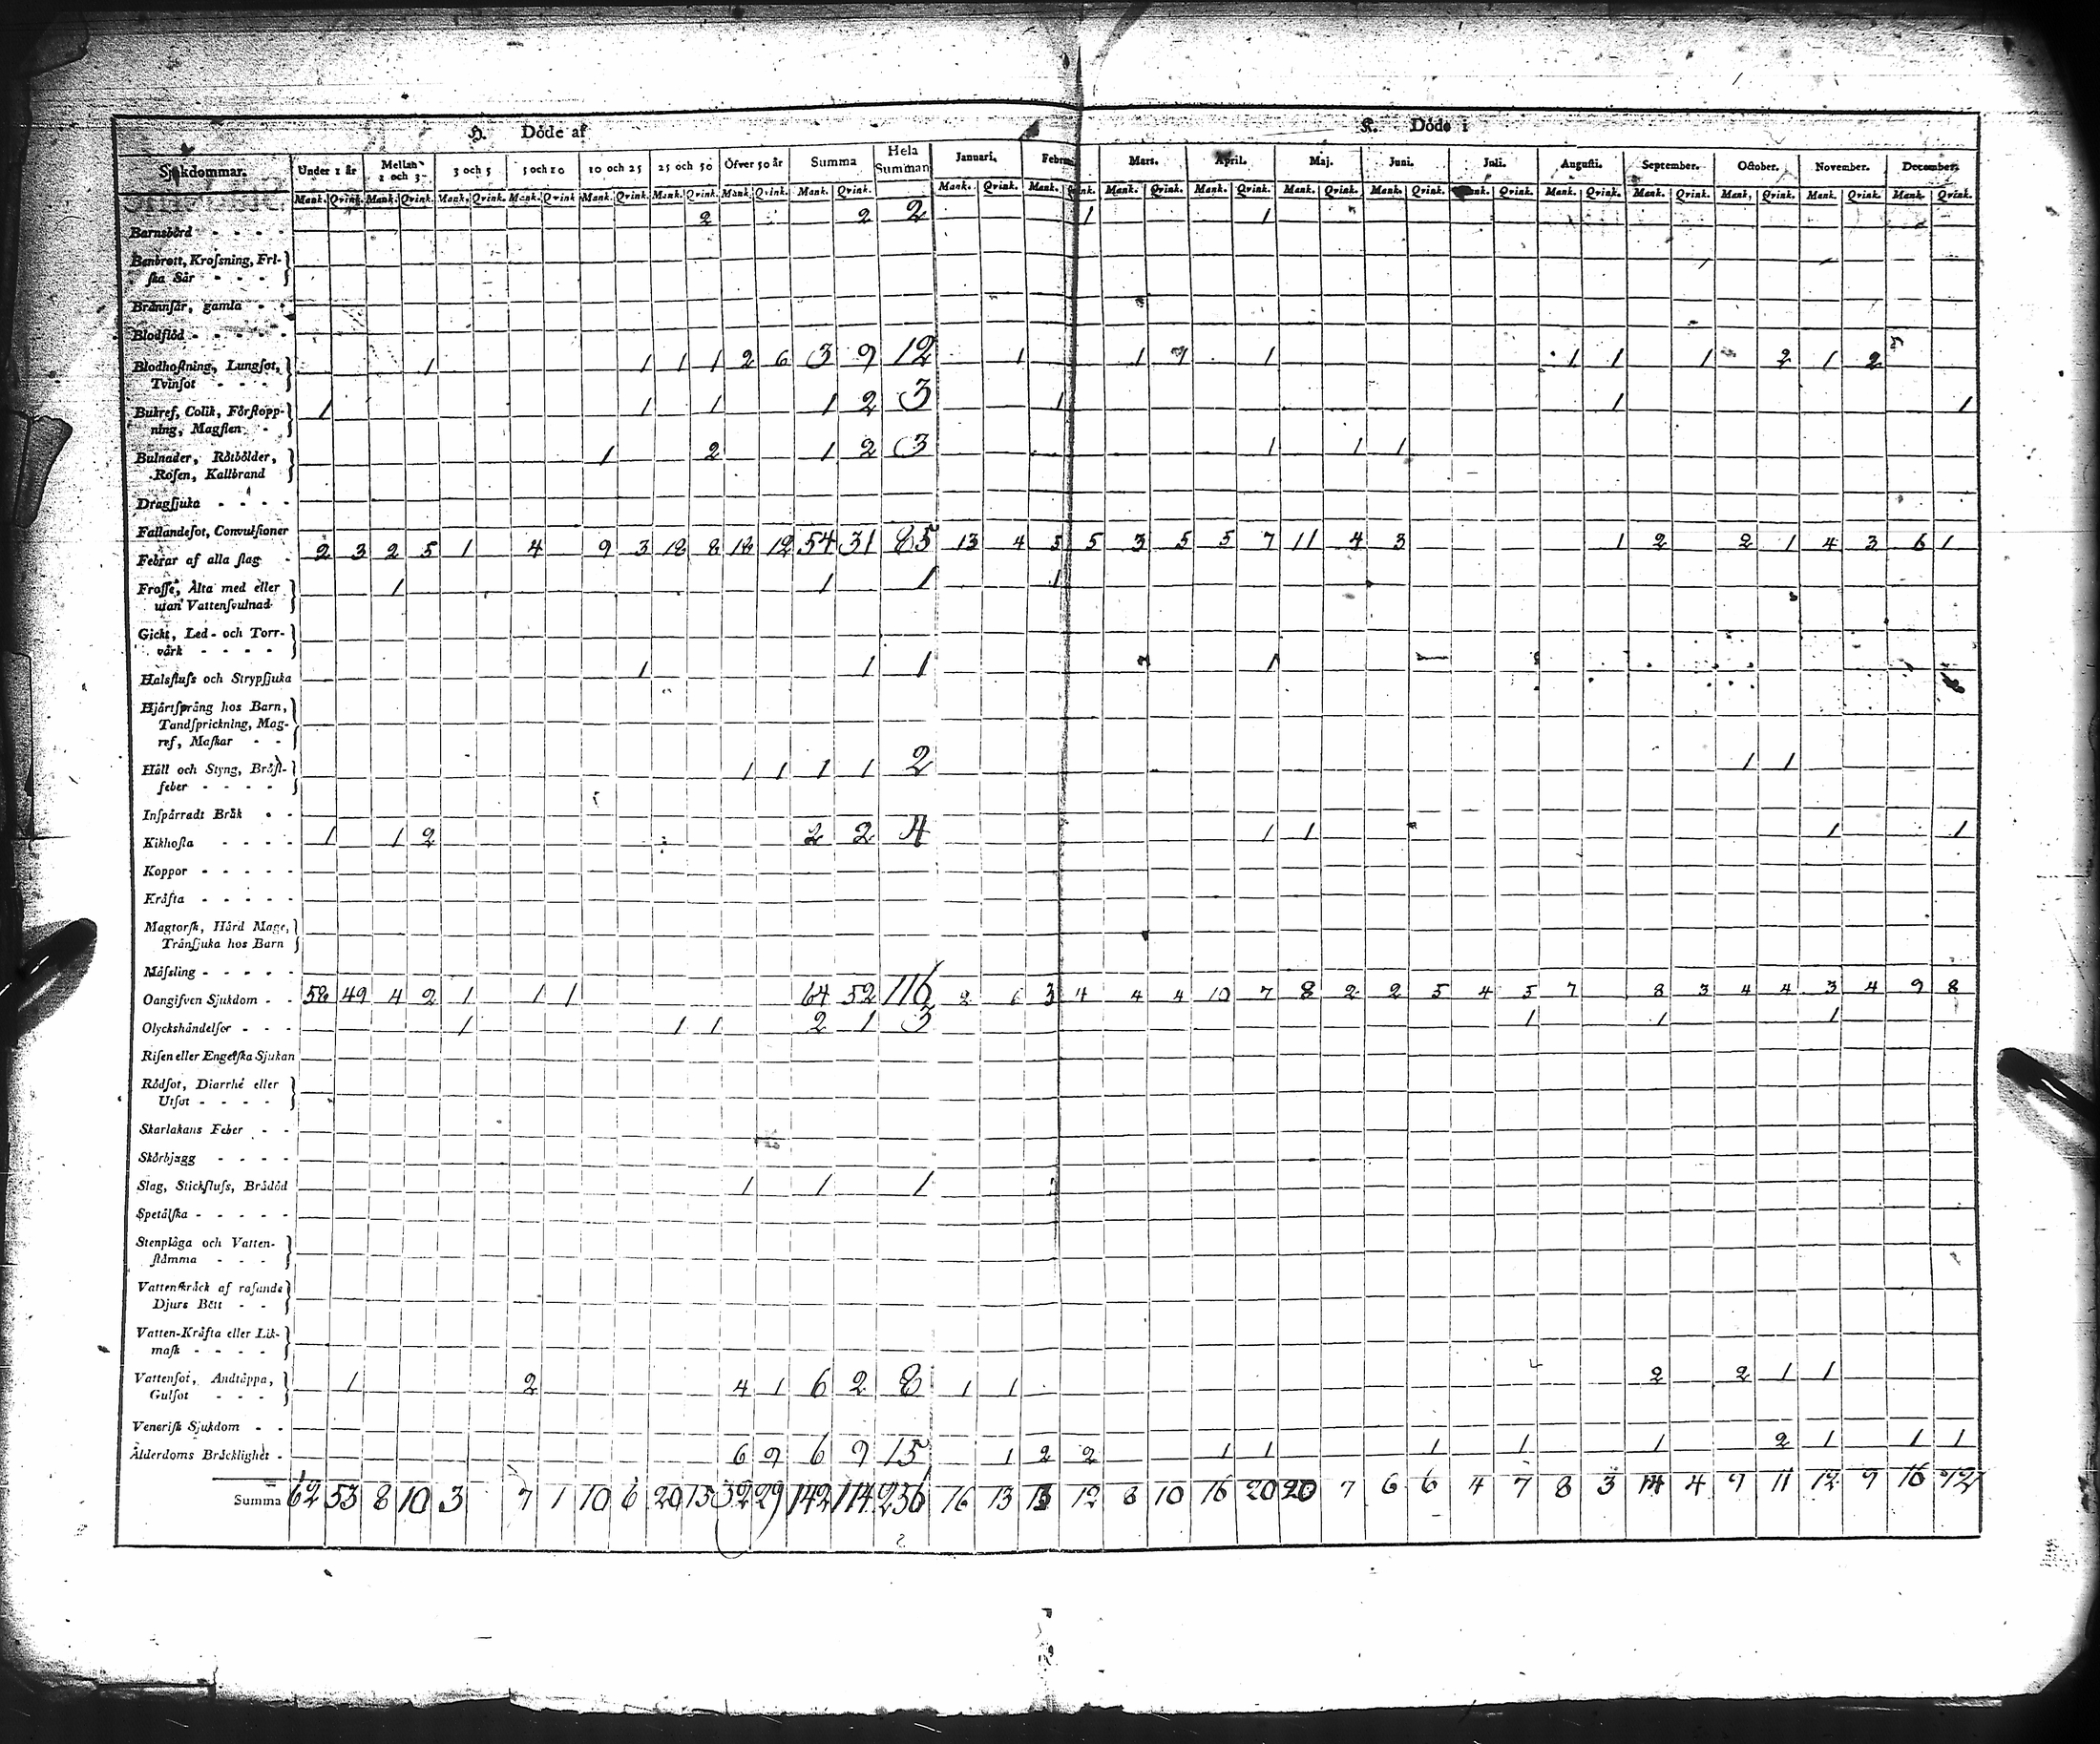 H. Döde af
K. Döde i
Sjukdommar. Under 1 år Mellan 1 och 3 3 och 5 5 och 10 10 och 25 25 och 50 Öfver 50 år Summa Hela Summan Januari. Februa Mars. April. Maj. Juni. Juli. Augusti. September. October. November. December.
Mank. Qvink. Mank. Qvink. Mank. Qvink. Mank. Qvink Mank. Qvink. Mank. Qvink. Mank. Qvink. Mank. Qvink. Mank. Qvink. Mank. Qvink. Mank. Qvink. Mank. Qvink. Mank. Qvink. Mank. Qvink. Mank. Qvink. Mank. Qvink. Mank. Qvink. Mank. Qvink. Mank. Qvink. Mank. Qvink.
Barnsbörd - - - - 2 2 2 1 1
Benbrott, Krofsning, Fri-
ska Sår - - - -
Brännsår, gamla - -
Blodflöd - - - - -
Blodhostning, Lungsot, 1 1 1 1 2 6 3 9 12 1 1 1 1 1 1 2 1 2
Tvinsot - - - -
Bukref, Colik, Förstopp- 1 1 1 1 2 3 1 1 1
ning, Magsten -
Bulnader, Rötbölder, 1 2 1 2 3 1 1 1
Rosen, Kallbrand
Dragsjuka - - - -
Fallandesot, Convulsioner
Febrar af alla slag - 2 3 2 5 1 4 9 3 18 8 18 12 54 31 85 13 4 5 5 3 5 5 7 11 4 3 1 2 2 1 4 3 6 1
Frosse, Älta med eller 1 1 1 1
utan Vattensvulnad
Gickt, Led- och Torr-
värk - - - -
Halsflufs och Strypsjuka 1 1 1 1
Hjärtsprång hos Barn,
Tandsprickning, Mag-
ref, Maskar - -
Håll och Styng, Bröst- 1 1 1 1 2 1 1
feber - - - -
Inspärradt Bråk - -
Kikhosta - - - - 1 1 2 2 2 4 1 1 1 1
Koppor - - - - -
Kräfta - - - - -
Magtorsk, Hård Mage,
Trånsjuka hos Barn
Måfsling - - - - -
Oangifven Sjukdom - - 52 49 4 2 1 1 1 64 52 116 2 6 3 4 4 4 10 7 8 2 2 5 4 5 7 8 3 4 4 3 4 9 8
Olyckshändelser - - - 1 1 1 2 1 3 1 1 1
Risen eller Engelska Sjukan
Rödsot, Diarrhé eller
Utsot - - - -
Skarlakans Feber - -
Skörbjugg - - - -
Slag, Stickflufs, Brådöd 1 1 1
Spetälska - - - - -
Stenplåga och Vatten-
stämma - - -
Vattenskräck af rasande
Djurs Bett - -
Vatten-Kräfta eller Lik-
mask - - - -
Vattensot, Andtäppa, 1 2 4 1 6 2 8 1 1 2 2 1 1
Gulsot - - -
Venerisk Sjukdom - -
Ålderdoms Bräcklighet - 6 9 6 9 15 1 2 2 1 1 1 1 1 2 1 1 1
Summa 62 53 8 10 3 7 1 10 6 20 13 32 29 142 114 256 16 13 13 12 8 10 16 20 20 7 6 6 4 7 8 3 14 4 9 11 12 9 16 12